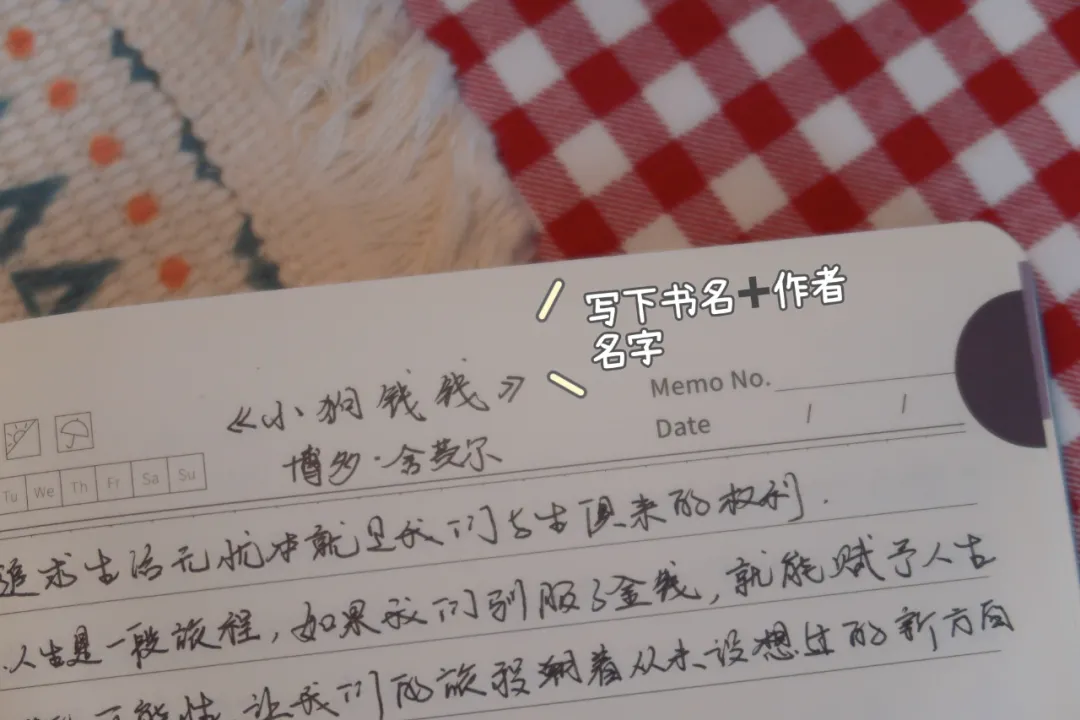 写下书名➕作者
名字
Memo No.
《小狗钱钱》
Date
博多·舍费尔
Tu We Th Fr Sa Su
追求生活无忧本就是我们与生俱来的权利.
人生是一段旅程，如果我们驯服了金钱，就能赋予人生
可能性 让我们的旅程朝着从未设想过的新方向